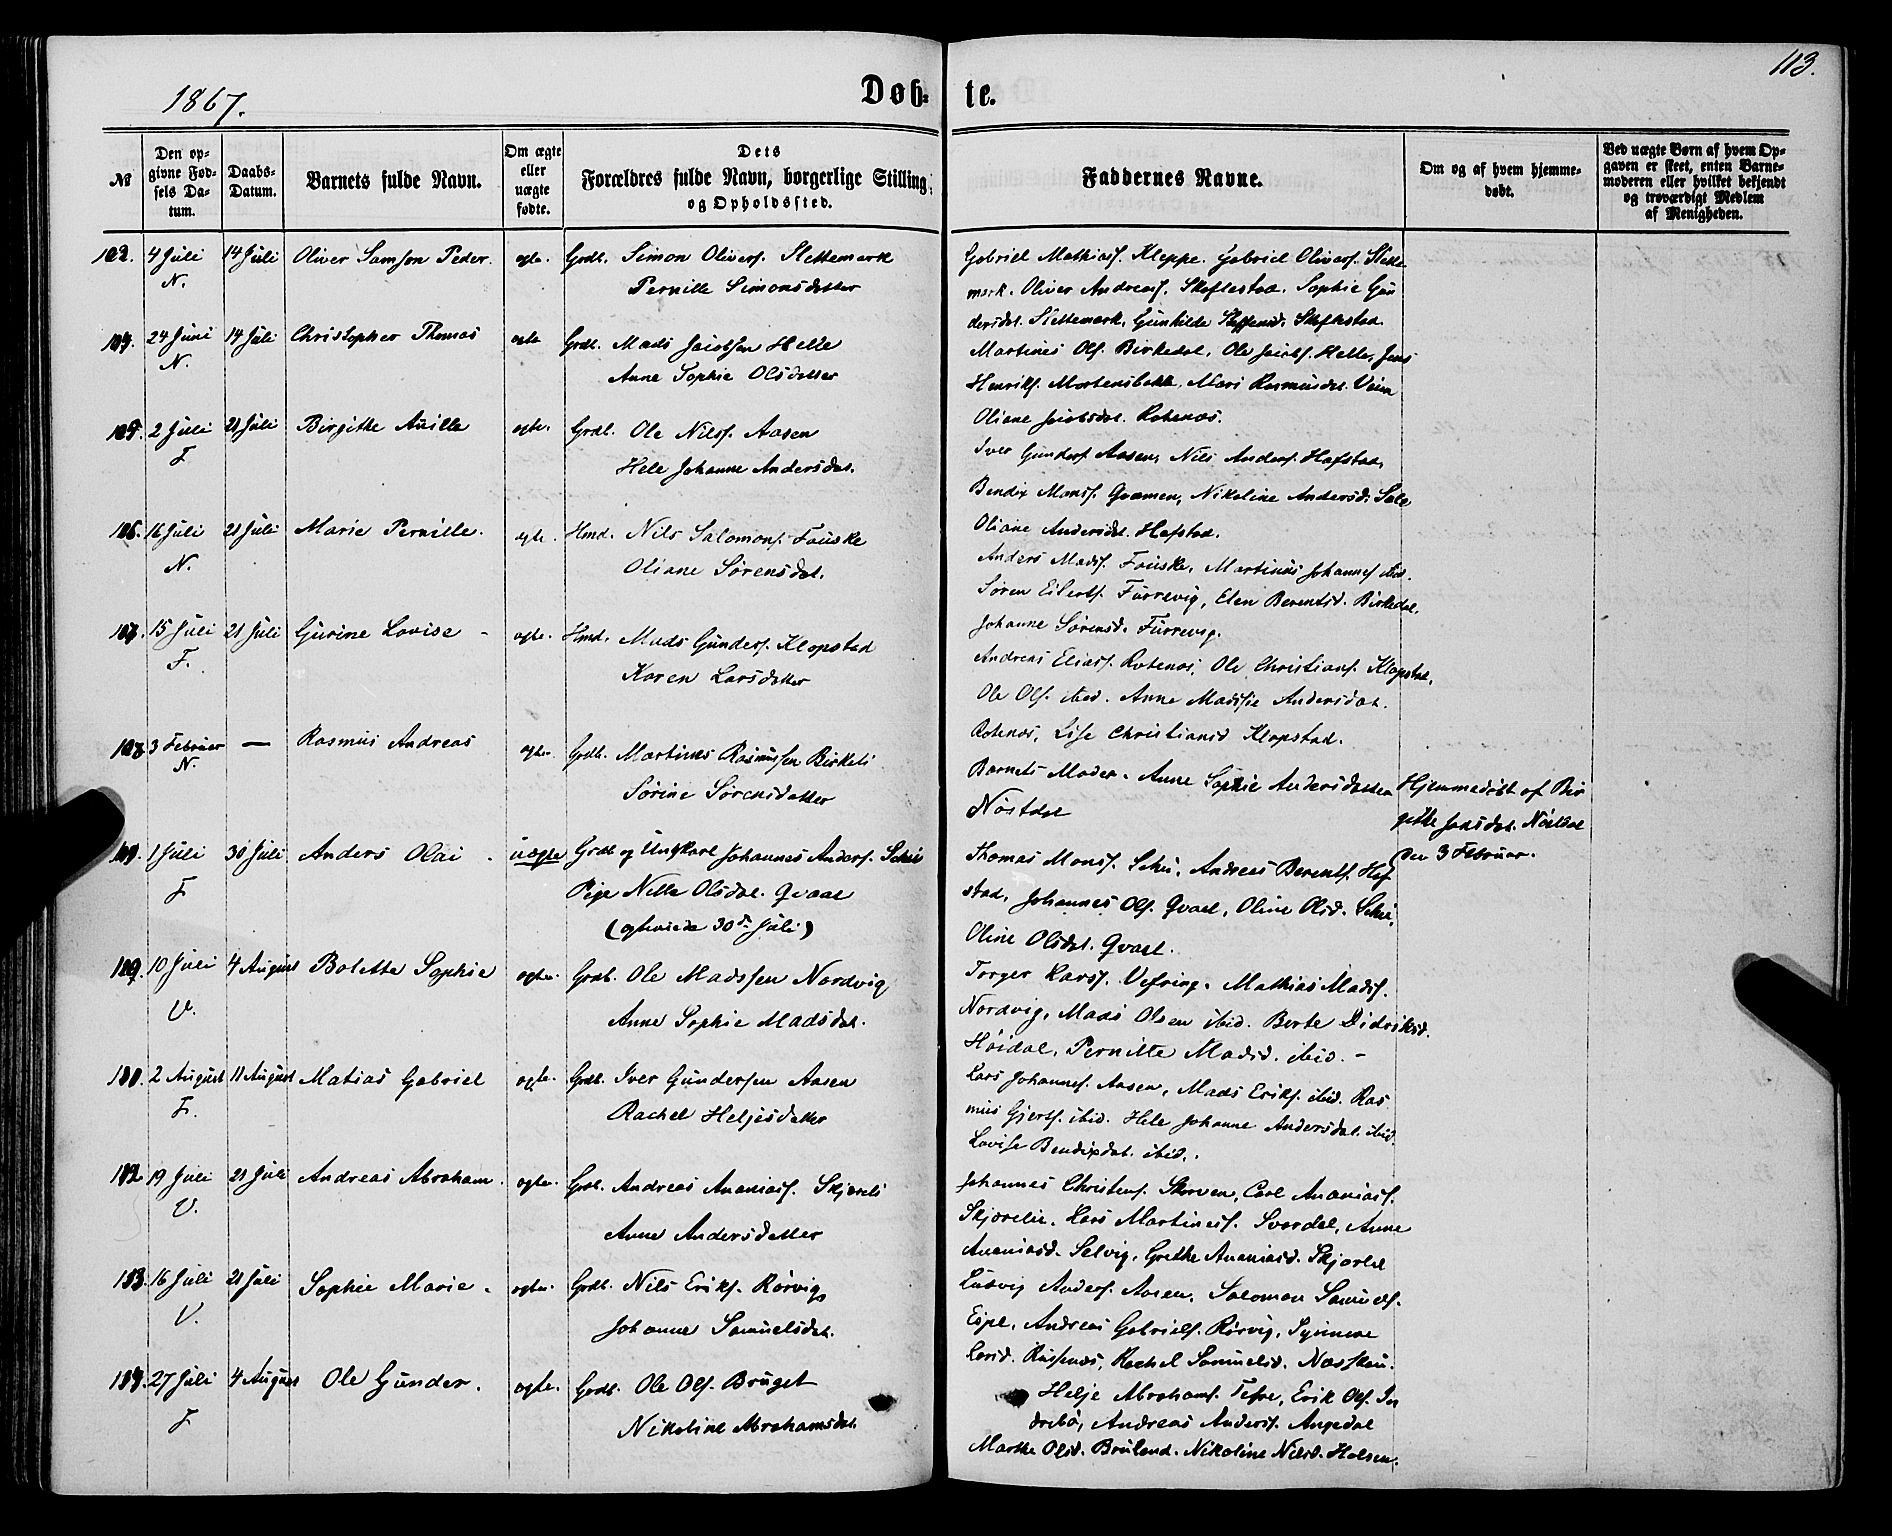 1867.
Døb-
te.
113.
№
Den op-
givne Fød-
sels Da-
tum.
Daabs-
Datum.
Barnets fulde Navn.
Om ægte
eller
uægte
fødte.
Dets
Forældres fulde Navn, borgerlige Stilling
og Opholdssted.
Faddernes Navne.
Om og af hvem hjemme-
døbt.
Ved uægte Børn af hvem Op-
gaven er skeet, enten Barne-
moderen eller hvilket bekjendt
og troværdigt Medlem
af Menigheden.
4 Juli 14 Juli Oliver Samson Peder. ægte. Grdb. Simon Olivers. Slettemark
N. Pernille Simonsdatter
Gabriel Mathias. Kleppe. Gabriel Olivers. Slette
mark. Oliver Andreas. Skeflestad. Sophie Gun
dersdat. Slettemark, Gunhilde Steffensd. Skeflestad.
24 Juni 14 Juli Christopher Thomas ægte Grdb. Mads Jacobsen Helle
N. Anne Sophie Olsdatter
Martines Ols. Birkedal, Ole Jacobs. Helle, Jens
Henriks. Mortensbakk, Mari Rasmusdat. Veien
Oliane Jacobsdat. Rotenæs.
105. 2 Juli 21 Juli Birgithe ægte. Grdb. Ole Nils. Aasen
F Hele Johanne Andersdat.
Iver Gunders. Aasen, Nils Anders. Hafstad,
Bendix Mons. Kvamen, Nikoline Andersd.
Oliane Andersdat. Hafstad.
106. 16 Juli 21 Juli Marie Pernille. ægte. Hmd. Nils Salomons. Fauske
N. Oliane Sørensdat.
Anders Mads. Fauske, Martinus Johannes. ibid.
Søren Eilerts. Furrevig, Elen Berentsd. Birkedal,
Johanne Sørensd. Furrevig.
107. 15 Juli 21 Juli Gurine Lovise - ægte. Hmd. Mads Gunders. Klopstad
F. Karen Larsdatter
Andreas Elias. Rotenæs, Ole Christians. Klopstad,
Ole Ols. ibid. Anne Andersdat.
Rotenæs, Lise Christiansd Klopstad.
3 Februar — Rasmus Andreas ægte. Grdb. Martines Rasmussen Birkeli
N. Sørine Sørensdatter
Barnets Moder. Anne Sophie Andersdatter
Nøstdal
Hjemmedøbt af Bir
githe Jonsdat. Nøstdal
den 3 Februar.
1 Juli 30 Juli Anders Olai. uægte Grdb og Ungkarl Johannes Anders.
F Pige Nille Olsdat. Qvaal
(egteviede 30te Juli)
Thomas Mons. Andreas Berents. Haf
stad, Johannes Ols. Qvael, Oline Olsd.
Oline Olsdat. Qvael.
10 Juli 4 August Bolette Sophie ægte. Grdb. Ole Madssen Nordvig
V. Anne Sophie Madsdat.
Torger Lars. Vefring. Mathias Mads.
Nordvig, Mads Olsen ibid. Berte Didriksd.
Høidal, Pernille Madsd. ibid. -
2 August 11 August Matias Gabriel ægte. Grdb. Iver Gundersen Aasen
F. Rachel Heljesdatter
Lars Johannes. Aasen, Mads Eriks. ibid. Ras
mus Gjerts. ibid. Hele Johanne Andersdat. ibid
Lovise Bendixdat. ibid.
112 19 Juli 21 Juli Andreas Abraham. ægte. Grdb. Andreas Ananias. Skjoreli
V. Anne Andersdatter
Johannes Christens. Storven, Carl Ananias.
Skjorelie. Lars Martines. Svardal, Anne
Ananiasd. Selvig, Grethe Ananiasd. Skjorlie
113. 16 Juli 21 Juli Sophie Marie. ægte. Grdb. Nils Eriks. Rørvig
V. Johanne Samuelsdat.
Ludvig Anders. Aasen, Salomon Samuels.
Espe, Andreas Gabriels. Rørvig, Synneve
Larsd. Rachel Samuelsd.
27 Juli 4 August Ole Gunder. ægte. Grdb. Ole Ols. Bruget
F Nikoline Abrahamsdat.
Helje Abrahams. Tefre, Erik Ols. In
drebø, Andreas Anders. Angedal
Marthe Olsd. Bruland. Nikoline Nilsd. Holsen.